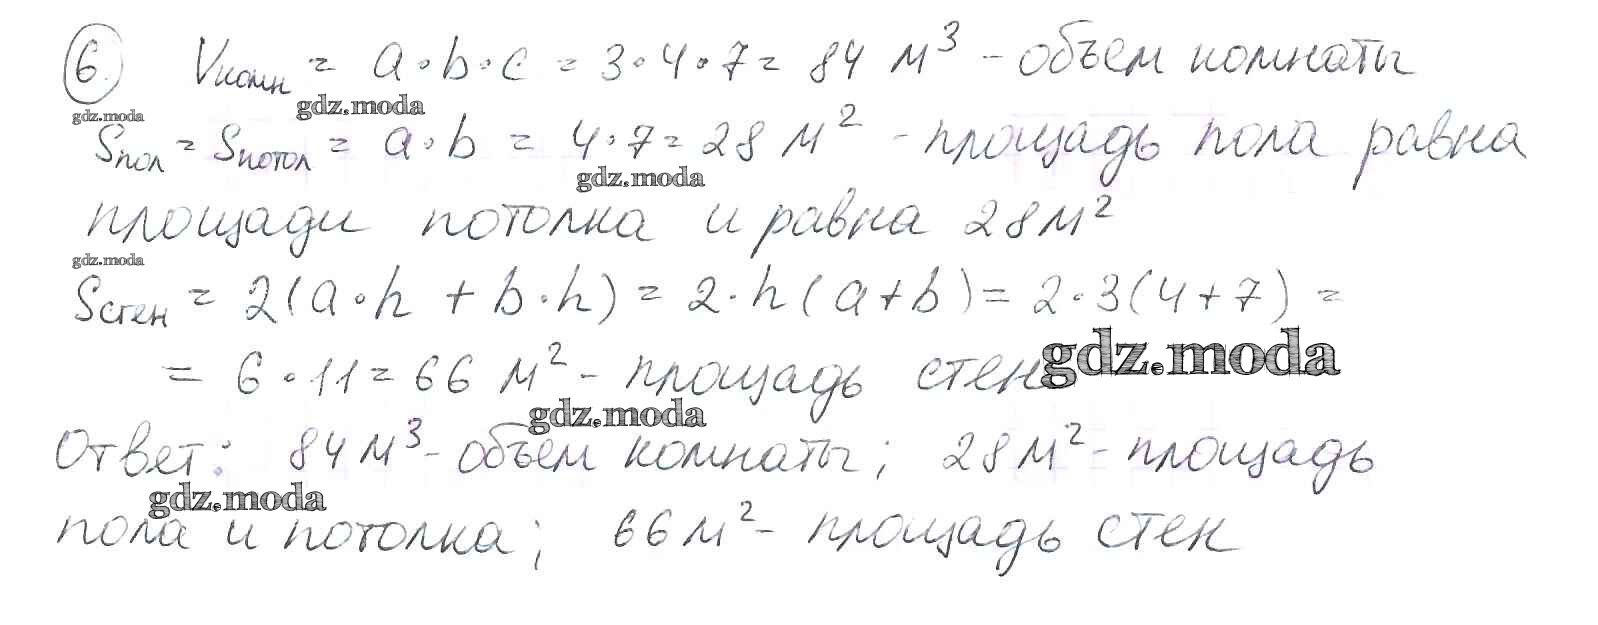 6. Vкомн = a·b·c = 3·4·7 = 84 м³ - объем комнаты
gdz.moda gdz.moda
Sпол = Sпотол = a·b = 4·7 = 28 м² - площадь пола равна
gdz.moda
площади потолка и равна 28 м²
gdz.moda
Sстен = 2(a·h + b·h) = 2·h(a+b) = 2·3(4+7) =
= 6·11 = 66 м² - площадь стен gdz.moda
gdz.moda
Ответ: 84 м³ - объем комнаты; 28 м² - площадь
gdz.moda
пола и потолка; 66 м² - площадь стен